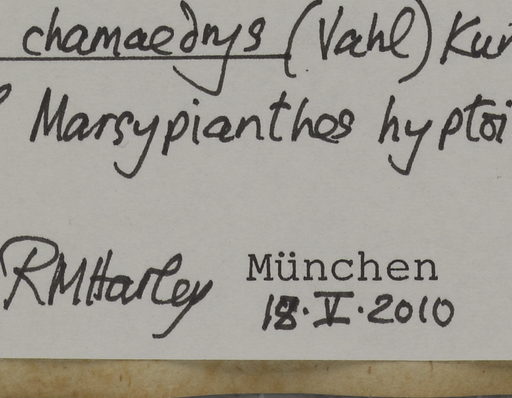 chamaedrys (Vahl) Kun
Marsypianthos hyptoi
RMHarley München
18·V·2010